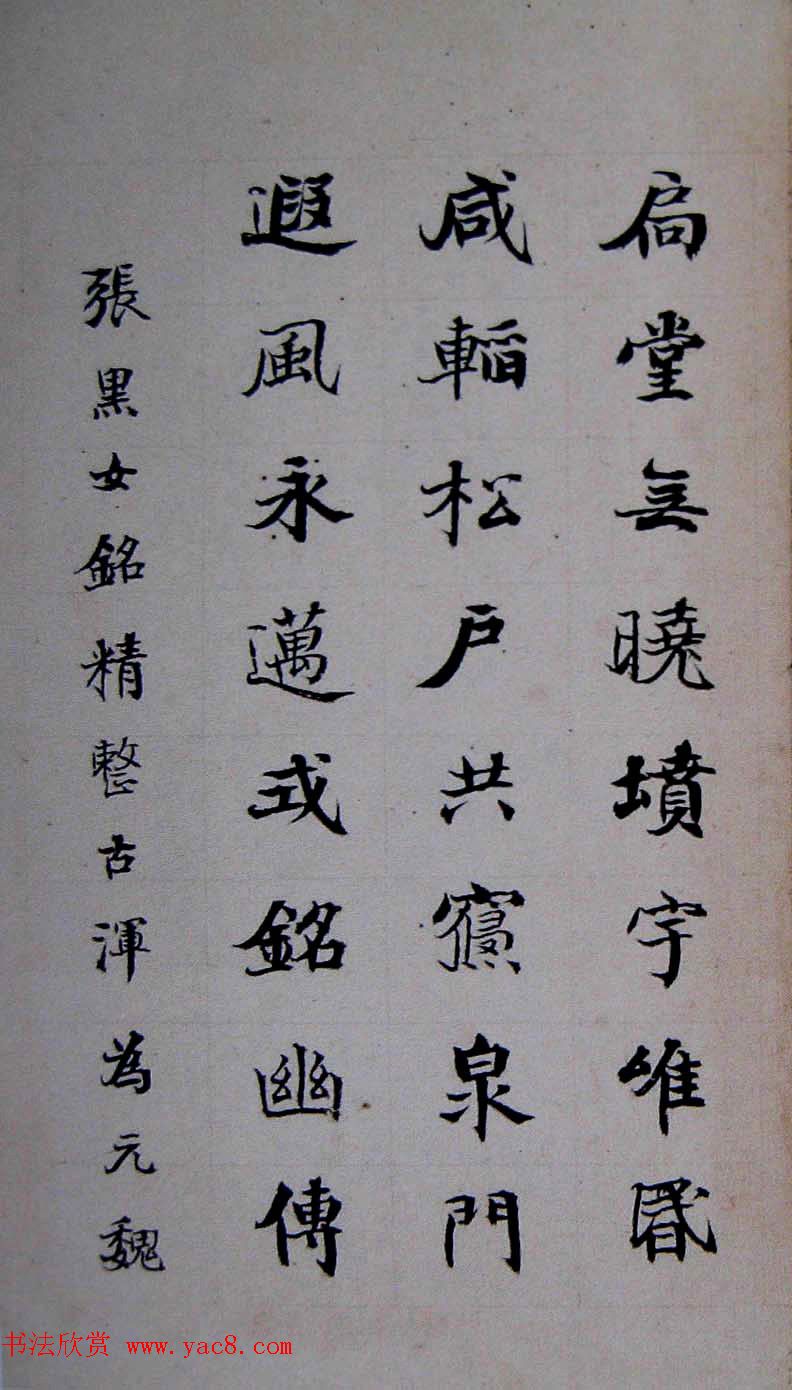 扃堂無曉墳宇唯昏
咸轁松戶共寢泉門
遐風永邁式銘幽傳
張黑女銘精整古渾為元魏
书法欣赏 www.yac8.com